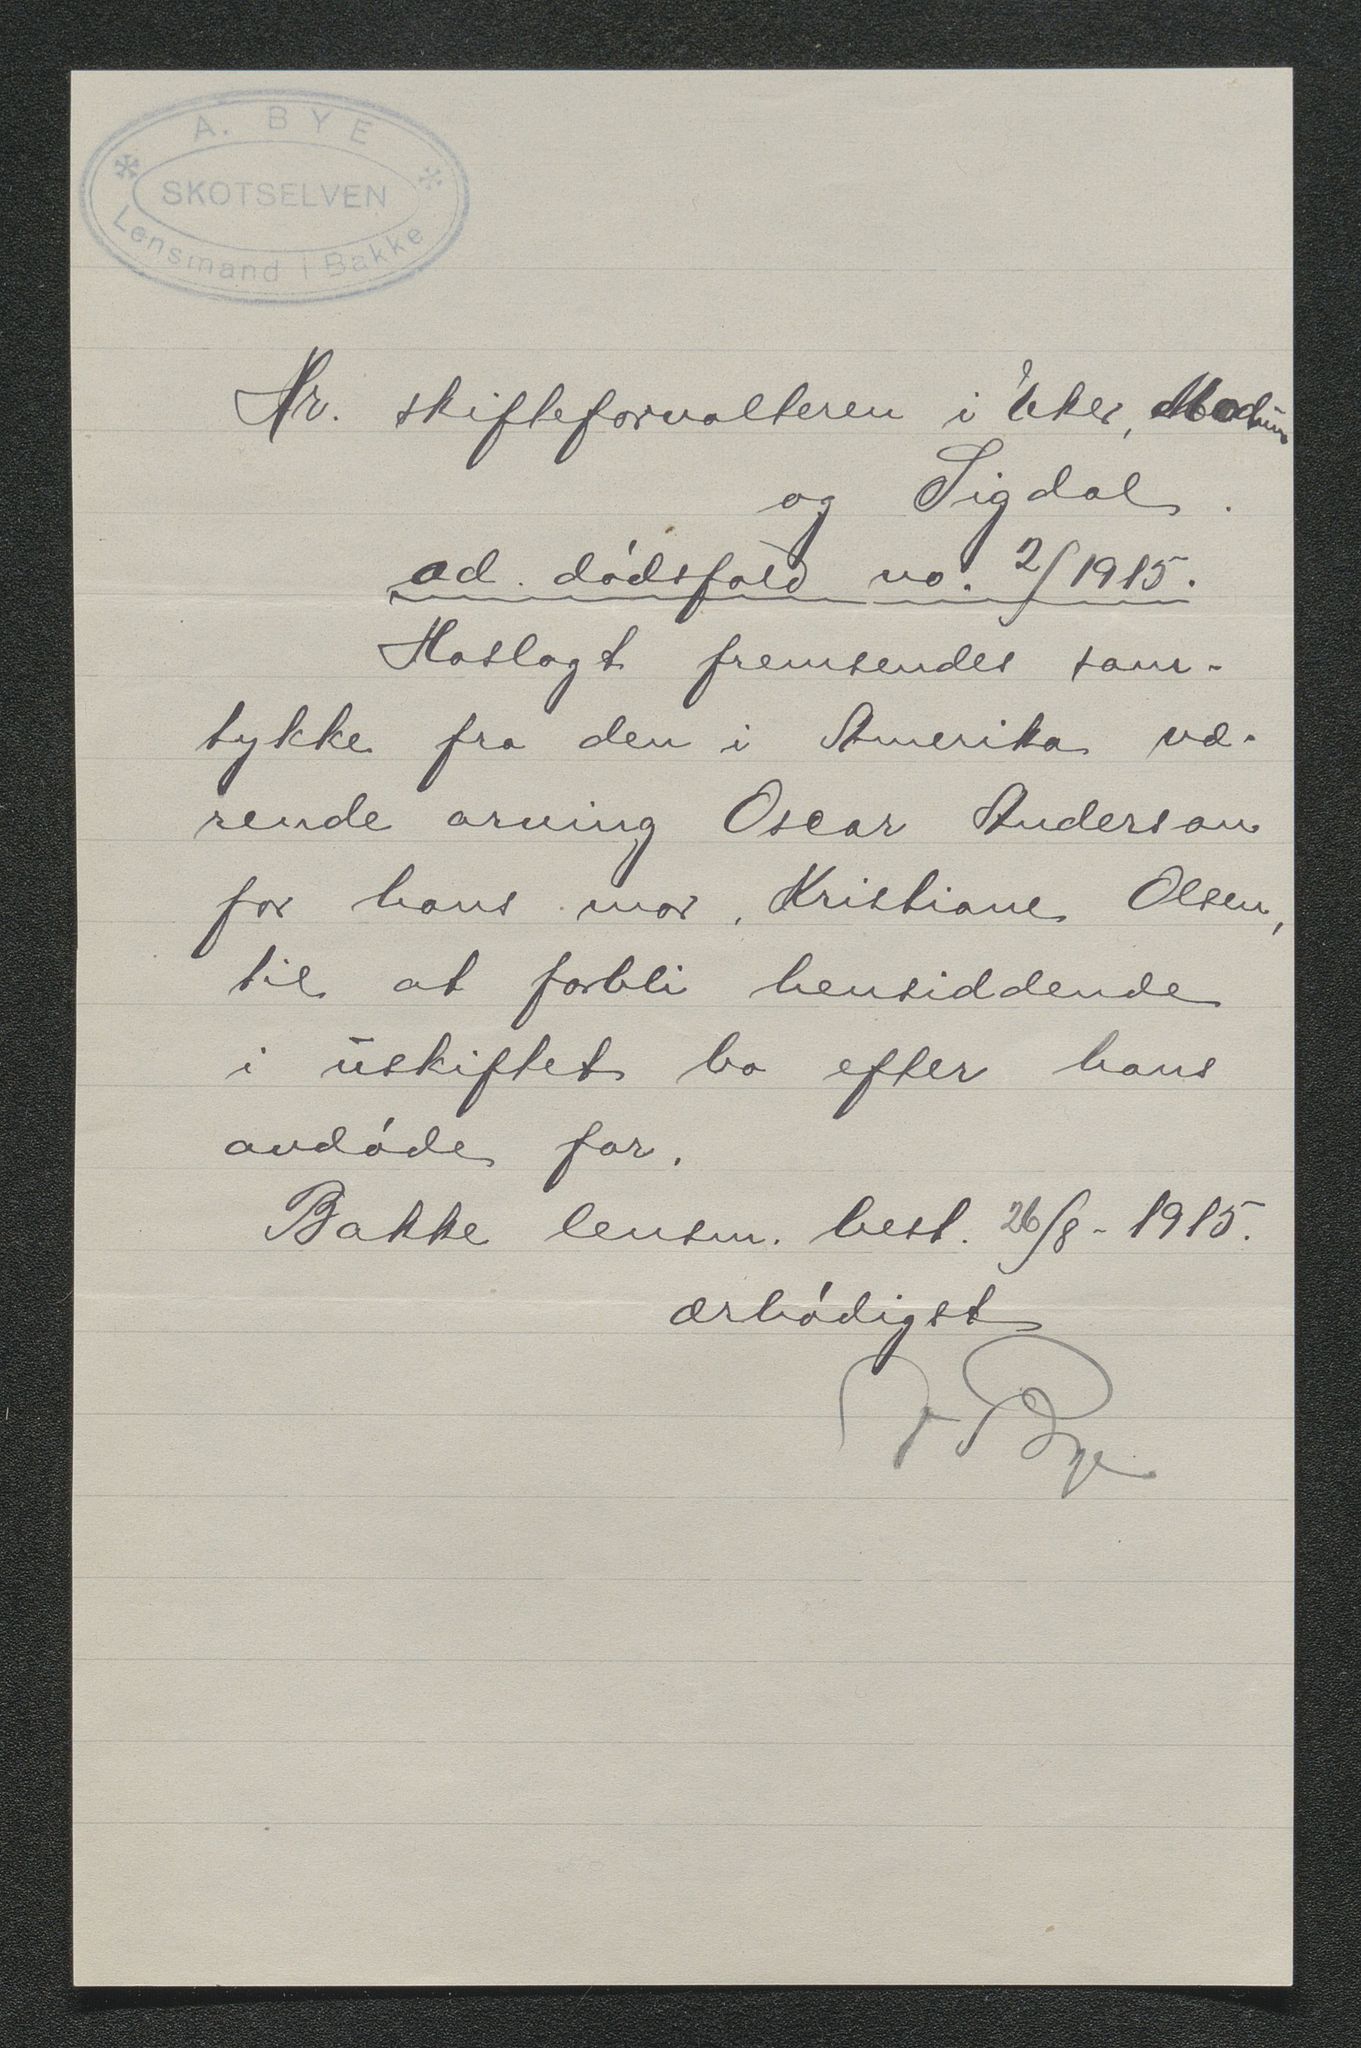 A. BYE
SKOTSELVEN
Lensmand i Bakke
Hr. skifteforvalteren i Eker, Modum
og Sigdal.
ad. dødsfald no. 2/1915.
Hoslagt fremsendes sam-
tykke fra den i Amerika væ-
rende arving Oscar Anderson
for hans mor, Kristiane Olsen,
til at forbli hensiddende
i uskiftet bo efter hans
avdøde far.
Bakke lensm. best. 26/8 - 1915.
ærbødigst
A Bye